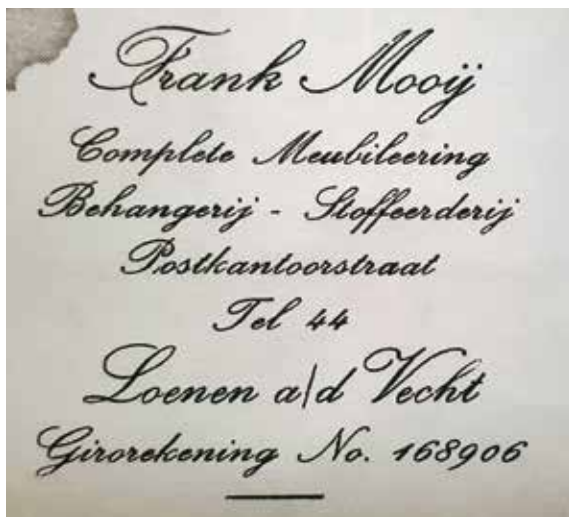 Frank Mooij
Complete Meubileering
Behangerij - Stoffeerderij
Postkantoorstraat
Tel 44
Loenen a/d Vecht
Girorekening No. 168906